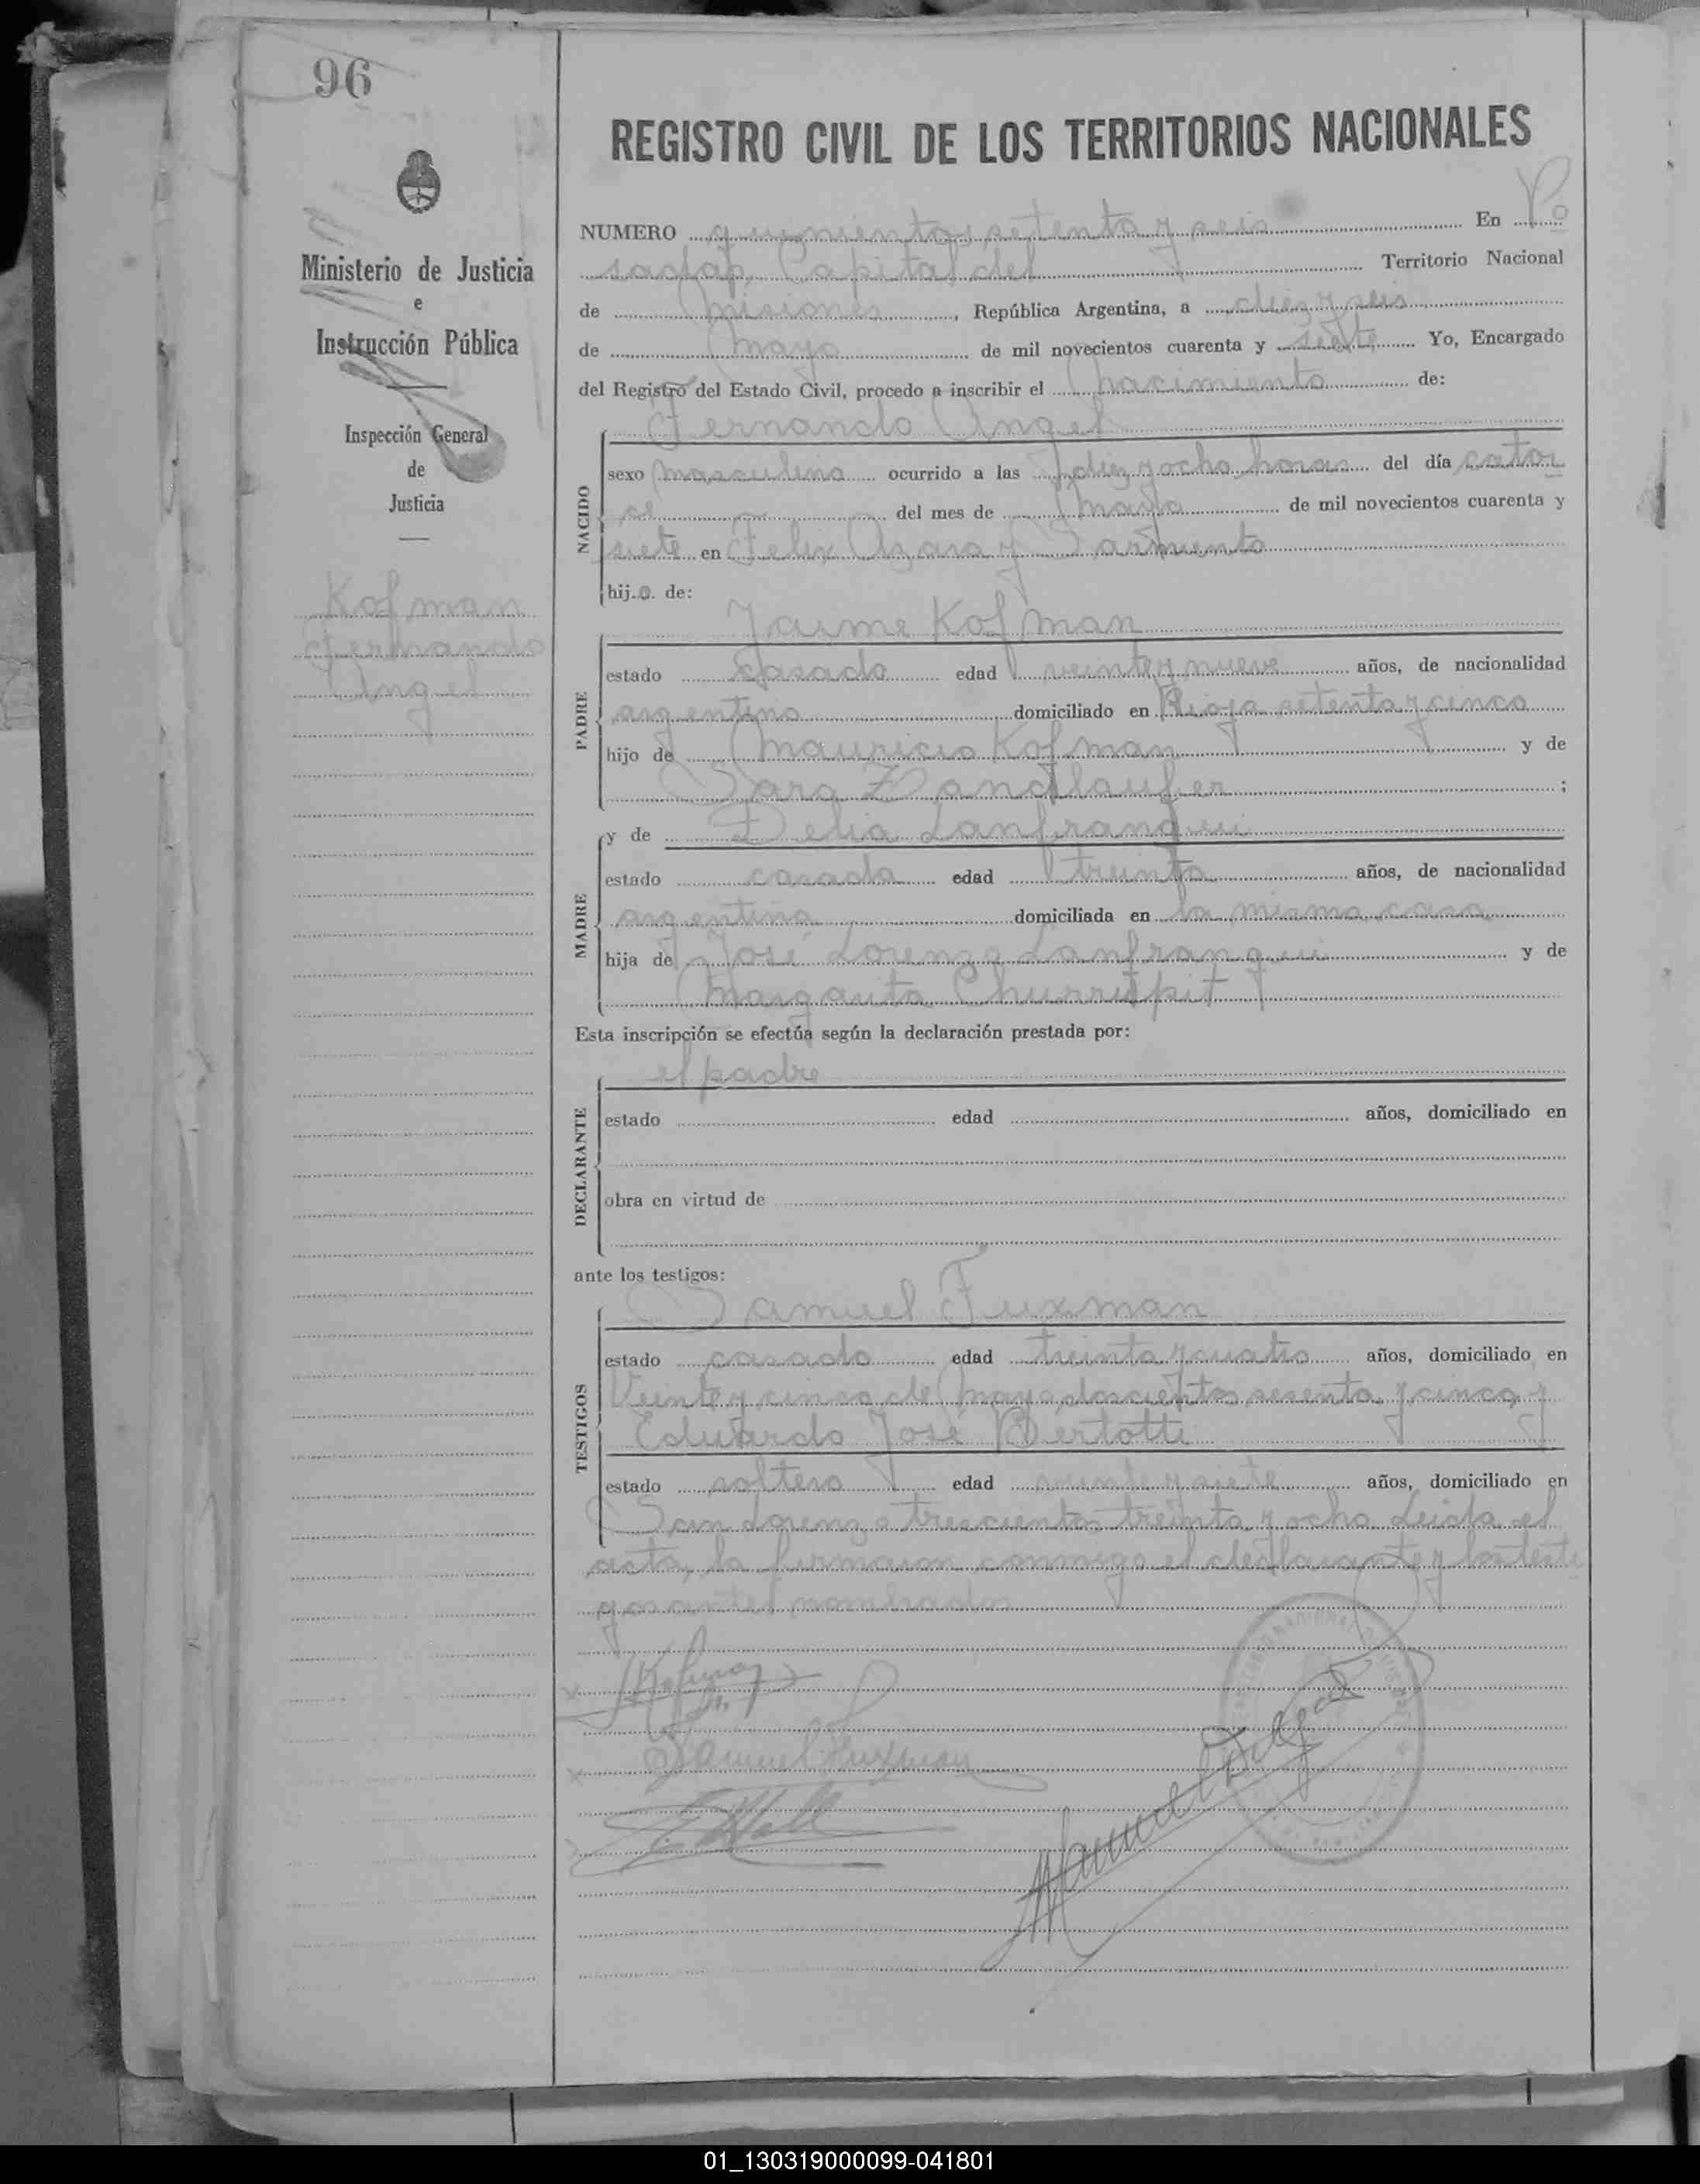 96
REGISTRO CIVIL DE LOS TERRITORIOS NACIONALES
Ministerio de Justicia
e
Instrucción Pública
Inspección General
de
Justicia
Kofman
Fernando
Angel
NUMERO quinientos setenta y seis En Po
sadas, Capital del Territorio Nacional
de Misiones, República Argentina, a diez y seis
de Mayo de mil novecientos cuarenta y siete Yo, Encargado
del Registro del Estado Civil, procedo a inscribir el nacimiento de:
NACIDO
Fernando Angel
sexo masculino ocurrido a las diez y ocho horas del día cator
ce del mes de Mayo de mil novecientos cuarenta y
siete en Felix Azara y Sarmiento
hijo de:
PADRE
Jaime Kofman
estado casado edad veinte y nueve años, de nacionalidad
argentino domiciliado en Rioja setenta y cinco
hijo de Mauricio Kofman y de
Sara ;
MADRE
y de Delia Lanfranqui
estado casada edad treinta años, de nacionalidad
argentina domiciliada en la misma casa
hija de José Lorenzo Lanfranqui y de
Margarita
Esta inscripción se efectúa según la declaración prestada por:
DECLARANTE
el padre
estado edad años, domiciliado en
obra en virtud de
ante los testigos:
TESTIGOS
Samuel Fuxman
estado casado edad treinta y cuatro años, domiciliado en
Veinte y cinco de Mayo doscientos sesenta y cinco y
Eduardo José Bertotti
estado soltero edad veinte y siete años, domiciliado en
San Lorenzo trescientos treinta y ocho. Leida el
acta, la firmaron conmigo el declarante y los testi
gos antes nombrados
Kofman
Samuel Fuxman
Manuel Delgado
01_130319000099-041801